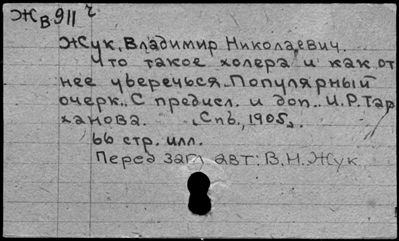 Ж в 911 ч
Жук, Владимир Николаевич.
Что такое холера и как от
нее уберечься. Популярный
очерк.. С предисл. и доп.. И.Р. Тар
ханова. Спб, 1905.
66 стр. илл.
Перед загл авт: В.Н. Жук